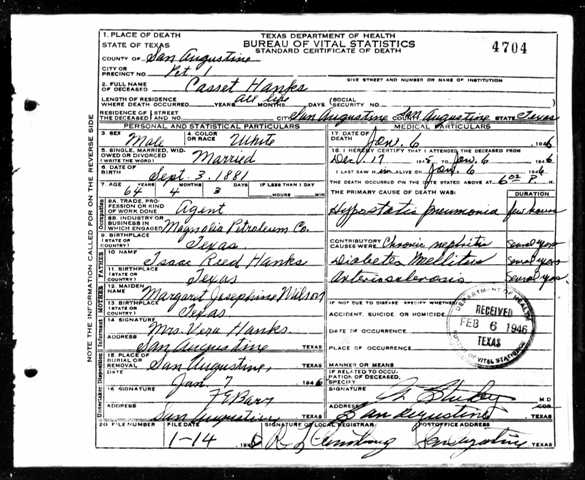 TEXAS DEPARTMENT OF HEALTH
BUREAU OF VITAL STATISTICS
STANDARD CERTIFICATE OF DEATH
4704
1. PLACE OF DEATH
STATE OF TEXAS
COUNTY OF San Augustine
CITY OR PRECINCT NO. Pct 1
GIVE STREET AND NUMBER OR NAME OF INSTITUTION
2. FULL NAME OF DECEASED Casset Hanks
LENGTH OF RESIDENCE WHERE DEATH OCCURRED all life YEARS MONTHS DAYS (SOCIAL SECURITY NO.
RESIDENCE OF THE DECEASED STREET AND NO. CITY San Augustine San Augustine STATE Texas
PERSONAL AND STATISTICAL PARTICULARS
3. SEX Male
4. COLOR OR RACE White
5. SINGLE, MARRIED, WIDOWED OR DIVORCED (WRITE THE WORD) Married
6. DATE OF BIRTH Sept. 3. 1881
7. AGE YEARS MONTHS DAYS IF LESS THAN 1 DAY
64 4 3 HOURS MIN
8A. TRADE, PROFESSION OR KIND OF WORK DONE Agent
8B. INDUSTRY OR BUSINESS IN WHICH ENGAGED Magnolia Petroleum Co.
9. BIRTHPLACE (STATE OR COUNTRY) Texas
10. NAME Isaac Reed Hanks
11. BIRTHPLACE (STATE OR COUNTRY) Texas
12. MAIDEN NAME Margaret Josephine Wilson
13. BIRTHPLACE (STATE OR COUNTRY) Texas
14. SIGNATURE Mrs. Vera Hanks
ADDRESS San Augustine TEXAS
15. PLACE OF BURIAL OR REMOVAL San Augustine, TEXAS
Jan. 7 1946
16. SIGNATURE
ADDRESS San Augustine TEXAS
MEDICAL PARTICULARS
17. DATE OF DEATH Jan. 6 1946
18. I HEREBY CERTIFY THAT I ATTENDED THE DECEASED FROM
Dec. 17 1945 Jan. 6 1946
I LAST SAW HIM ALIVE ON Jan. 6 1946
THE DEATH OCCURRED ON THE DATE STATED ABOVE AT 6 P. M.
THE PRIMARY CAUSE OF DEATH WAS: DURATION
Hypostatic pneumonia few hours
CONTRIBUTORY CAUSES WERE Chronic nephritis
Diabetes Mellitus
Arteriosclerosis
IF NOT DUE TO DISEASE, SPECIFY WHETHER:
ACCIDENT, SUICIDE OR HOMICIDE
DATE OF OCCURRENCE
PLACE OF OCCURRENCE
MANNER OR MEANS
IF RELATED TO OCCUPATION OF DECEASED, SPECIFY
SIGNATURE M D
ADDRESS San Augustine TEXAS
DEPARTMENT OF HEALTH
RECEIVED
FEB 6 1946
TEXAS
BUREAU OF VITAL STATISTICS
20. FILE NUMBER
FILE DATE
1-14
SIGNATURE OF LOCAL REGISTRAR
POSTOFFICE ADDRESS
San Augustine TEXAS
NOTE THE INFORMATION CALLED FOR ON THE REVERSE SIDE
Occupation
FATHER
MOTHER
Informant
Undertaker